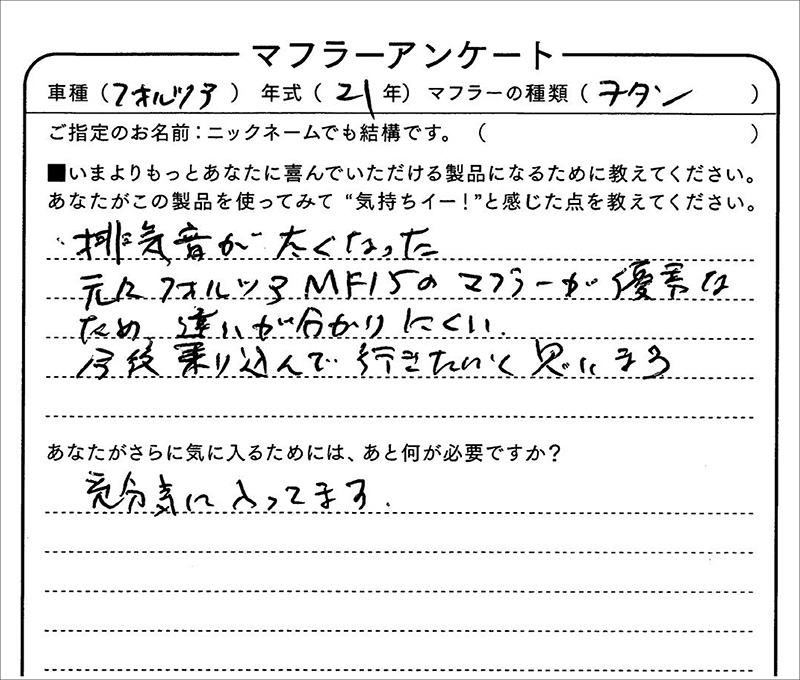 マフラーアンケート
車種（フォルツァ）年式（21年）マフラーの種類（チタン）
ご指定のお名前：ニックネームでも結構です。（　）
■いまよりもっとあなたに喜んでいただける製品になるために教えてください。
あなたがこの製品を使ってみて“気持ちイー！”と感じた点を教えてください。
・排気音が太くなった
元々フォルツァMF15のマフラーが優秀な
ため、違いが分かりにくい.
今後乗り込んで行きたいく思います
あなたがさらに気に入るためには、あと何が必要ですか？
充分気に入ってます.